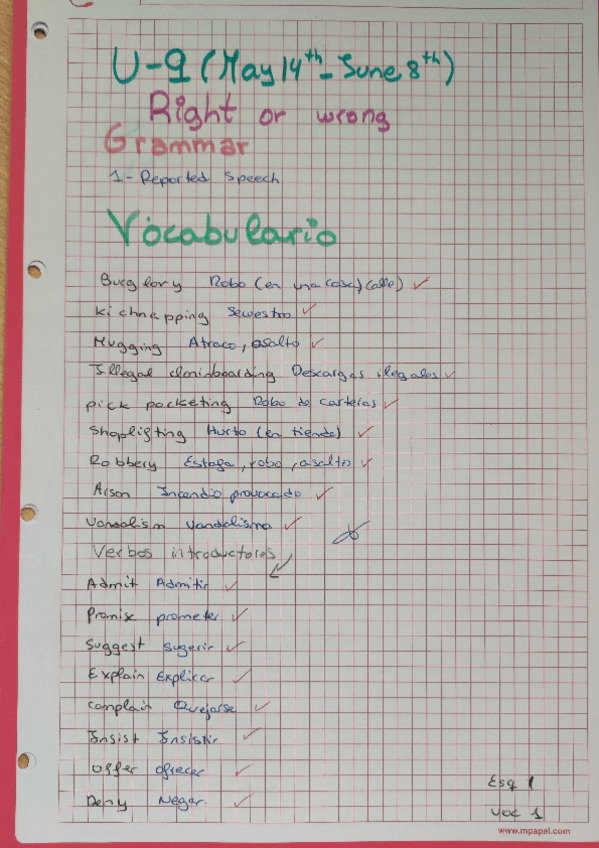 U-9 (May 14th - June 8th)
Right or wrong
Grammar
1- Reported Speech
Vocabulario
Burglary Robo (en una casa) (calle) ✓
Kidnapping Secuestro ✓
Mugging Atraco, asalto ✓
Illegal downloading Descargas ilegales ✓
pick pocketing Robo de carteras ✓
Shoplifting Hurto (en tienda) ✓
Robbery Estafa, robo, asalto ✓
Arson Incendio provocado ✓
Vandalism Vandalismo ✓
Verbos introductores
Admit Admitir ✓
Promise prometer ✓
Suggest sugerir ✓
Explain Explicar ✓
Complain Quejarse ✓
Insist Insistir ✓
Offer ofrecer ✓
Deny Negar. ✓
Esq 1
Voc 1
www.mpapel.com